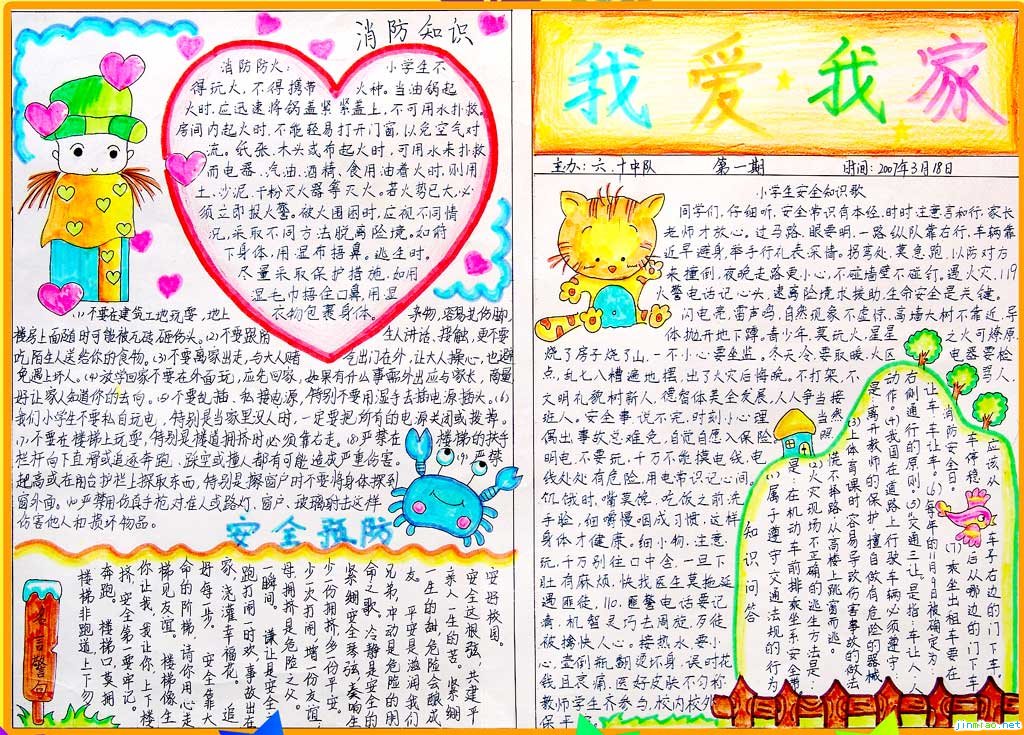 消防知识
消防防火：小学生不
得玩火，不得携带火种。当油锅起
火时，应迅速将锅盖紧紧盖上，不可用水扑救。
房间内起火时，不能轻易打开门窗，以免空气对
流。纸张、木头或布起火时，可用水来扑救
而电器、汽油、酒精、食用油着火时，则用
土、沙泥、干粉灭火器等灭火。若火势已大，必
须立即报火警。被火围困时，应视不同情
况，采取不同方法脱离险境。如俯
下身体，用湿布捂鼻。逃生时，
尽量采取保护措施，如用
湿毛巾捂住口鼻，用湿
衣物包裹身体。
(1)不要在建筑工地玩耍，地上
杂物，容易扎伤脚，
楼房上面随时可能被瓦砖砸伤头。(2)不要跟陌
生人讲话、接触，更不要
吃陌生人送给你的食物。(3)不要离家出走，与大人赌
气出门在外，让大人操心，也避
免遇上坏人。(4)放学回家不要在外面玩，应先回家，如果有什么事需外出应与家长，商量
好让家人知道你的去向。(5)不要乱插、私接电源，特别不要用湿手去插电源插头。(6)
我们小学生不要私自玩电，特别是当家里没人时，一定要把所有的电源关闭或拨莽。
(7)不要在楼梯上玩耍，特别是楼道拥挤时必须靠右走。(8)严禁在楼梯的扶手
栏杆向下直滑或追逐奔跑、踩空或撞人都有可能造成严重伤害。(9)严禁
把高或在阳台护栏上探取东西，特别是擦窗户时不要将身体探到
窗外面。(10)严禁用仿真手枪对准人或路灯、窗户、玻璃射击这样
伤害他人和损坏物品。
安全预防
安好校园。
安全这根弦，共建平
亲人一生的苦。紧绷
一生的甜，危险会酿成
友。平安是滋润我们
兄弟，冲动是危险的朋
命之歌。冷静是安全的
紧绷安全琴弦，奏响生
少一份拥挤，多一份平安。
少一次打闹，增一份友谊，
母，拥挤是危险之父。
一瞬间。谦让是安全之
跑打闹一时欢，事故出在
家，浇灌幸福花。追
好每一步。安全靠大
命的阶梯，请你用心走
梯见友谊。楼梯像生
你让我，我让你，上下楼
挤，安全第一要牢记。
奔跑。楼梯口，莫拥
楼梯非跑道，上下勿
名言警句
我爱我家
主办：六.十中队 第一期 时间：2007年3月18日
小学生安全知识歌
同学们，仔细听，安全常识有本经，时时注意言和行，家长
老师才放心。过马路，眼要明，一路纵队靠右行，车辆靠
近早避身，举手行礼表深情。拐弯处，莫急跑，以防对方
来撞倒，夜晚走路更小心，不碰墙壁不碰钉。遇火灾，119
火警电话记心头，逃离险境求援助，生命安全是关键。
闪电亮，雷声鸣，自然现象不虚惊，高墙大树不靠近，导
体抛开地下蹲。青少年，莫玩火，星星之火可燎原，
烧了房子烧了山，一不小心要坐监。冬天冷，要取暖，火区电器要检
点，乱七八糟遍地摆，出了火灾后悔晚。不打架，不骂人，
文明礼貌树新人，德智体美全发展，人人争当接
班人。安全事，说不完，时刻小心理当然，
偶出事故总难免，自觉自愿入保险
明电，不要玩，千万不能摸电线，电
线处处有危险，用电常识记心间。
饥饿时，嘴莫馋，吃饭之前洗
手脸，细嚼慢咽成习惯，这样
身体才健康。细小物，注意
玩，千万别往口中含，一旦下
肚有麻烦，快找医生莫拖延
遇匪徒，110，匪警电话要记
清，机智灵巧去周旋，歹徒
被擒快人心。接热水，要小
心，烫倒瓶翻烫坏身，误时花
钱且哀痛，医好皮肤不匀称
教师学生齐参与，校内校外
保平
应该从车子右边的门下车，
车停稳后从哪边的门下车
(7)乘坐出租车要在
消防安全日。
让车、车让车。(6)每年的11月9日被确定为
右侧通行的原则。(5)"交通三让"是指：车让人、人
动作。(4)我国在道路上行驶车辆必须遵守
是：离开教师的保护，擅自做有危险的器械
(3)上体育课时容易导致伤害事故的做法
慌不择路从高楼上跳窗而逃。
(2)火灾现场不正确的逃生方法是：
是：在机动车前排乘坐系安全带
(1)属于遵守交通法规的行为
知识问答
jinmiao.net